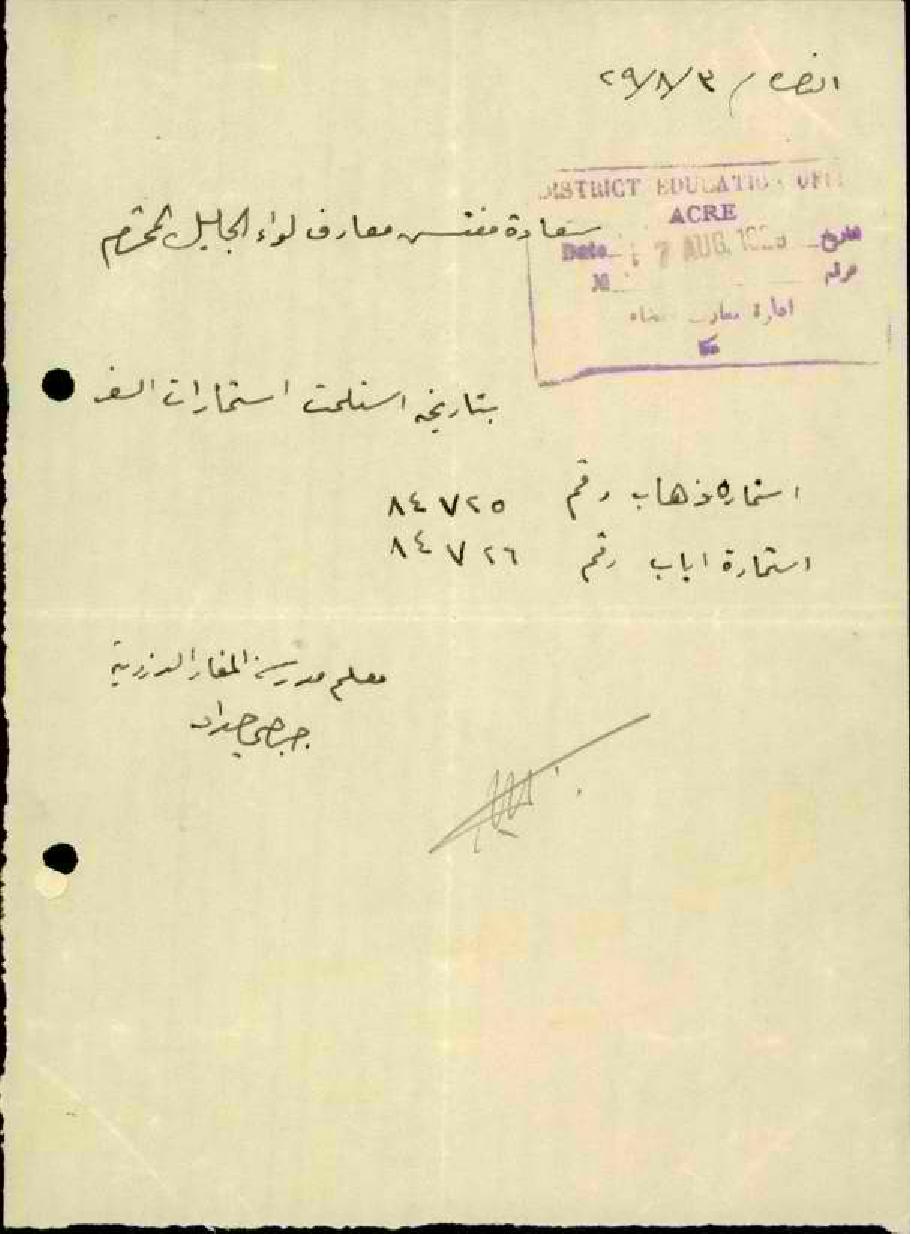 الناصرة / ٢٩/٨/٣
DISTRICT EDUCATION OFF
ACRE
Date 7 AUG. 192 تاريخ
№ نمرة
ادارة معارف قضاء
عكا
سعادة مفتش معارف لواء الجليل المحترم
بتاريخه استلمت استمارات السفر
استمارة ذهاب رقم ٨٤٧٢٥
استمارة اياب رقم ٨٤٧٢٦
معلم مدرسة المغار الدرزية
جرجي حداد